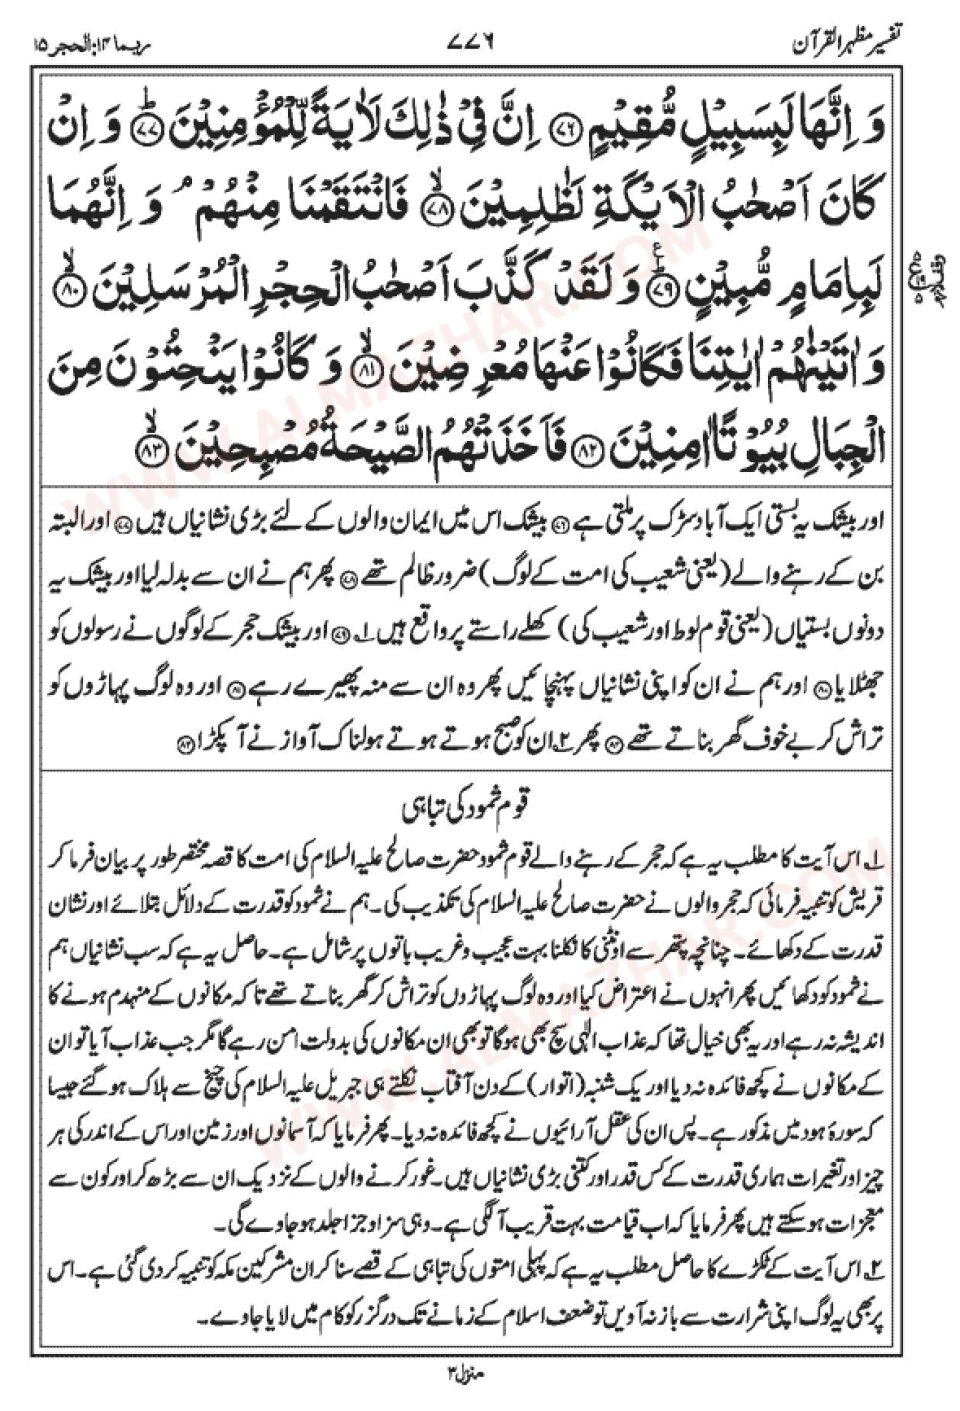 تفسیر مظہر القرآن
۷۷۶
ربما ۱۴: الحجر ۱۵
وَ اِنَّهَا لَبِسَبِيْلٍ مُّقِيْمٍ ﴿۷۶﴾ اِنَّ فِيْ ذٰلِكَ لَاٰيَةً لِّلْمُؤْمِنِيْنَ ؕ﴿۷۷﴾ وَ اِنْ
كَانَ اَصْحٰبُ الْاَيْكَةِ لَظٰلِمِيْنَ ۙ﴿۷۸﴾ فَانْتَقَمْنَا مِنْهُمْ ۘ وَ اِنَّهُمَا
لَبِاِمَامٍ مُّبِيْنٍ ؕ﴿۷۹﴾ وَ لَقَدْ كَذَّبَ اَصْحٰبُ الْحِجْرِ الْمُرْسَلِيْنَ ۙ﴿۸۰﴾
وَ اٰتَيْنٰهُمْ اٰيٰتِنَا فَكَانُوْا عَنْهَا مُعْرِضِيْنَ ۙ﴿۸۱﴾ وَ كَانُوْا يَنْحِتُوْنَ مِنَ
الْجِبَالِ بُيُوْتًا اٰمِنِيْنَ ﴿۸۲﴾ فَاَخَذَتْهُمُ الصَّيْحَةُ مُصْبِحِيْنَ ۙ﴿۸۳﴾
اور بیشک یہ بستی ایک آباد سڑک پر ملتی ہے ﴿۷۶﴾ بیشک اس میں ایمان والوں کے لئے بڑی نشانیاں ہیں ﴿۷۷﴾ اور البتہ
بن کے رہنے والے (یعنی شعیب کی امت کے لوگ) ضرور ظالم تھے ﴿۷۸﴾ پھر ہم نے ان سے بدلہ لیا اور بیشک یہ
دونوں بستیاں (یعنی قوم لوط اور شعیب کی) کھلے راستے پر واقع ہیں ۱؎ ﴿۷۹﴾ اور بیشک حجر کے لوگوں نے رسولوں کو
جھٹلایا ﴿۸۰﴾ اور ہم نے ان کو اپنی نشانیاں پہنچائیں پھر وہ ان سے منہ پھیرے رہے ﴿۸۱﴾ اور وہ لوگ پہاڑوں کو
تراش کر بے خوف گھر بناتے تھے ﴿۸۲﴾ پھر ۲؎ ان کو صبح ہوتے ہوتے ہولناک آواز نے آ پکڑا ﴿۸۳﴾
قوم ثمود کی تباہی
۱؎ اس آیت کا مطلب یہ ہے کہ حجر کے رہنے والے قوم ثمود حضرت صالح علیہ السلام کی امت کا قصہ مختصر طور پر بیان فرما کر
قریش کو تنبیہ فرمائی کہ حجر والوں نے حضرت صالح علیہ السلام کی تکذیب کی۔ ہم نے ثمود کو قدرت کے دلائل بتلائے اور نشان
قدرت کے دکھائے۔ چنانچہ پتھر سے اونٹنی کا نکلنا بہت عجیب و غریب باتوں پر شامل ہے۔ حاصل یہ ہے کہ سب نشانیاں ہم
نے ثمود کو دکھائیں پھر انہوں نے اعتراض کیا اور وہ لوگ پہاڑوں کو تراش کر گھر بناتے تھے تاکہ مکانوں کے منہدم ہونے کا
اندیشہ نہ رہے اور یہ بھی خیال تھا کہ عذاب الٰہی سچ بھی ہوگا تو بھی ان مکانوں کی بدولت امن رہے گا مگر جب عذاب آیا تو ان
کے مکانوں نے کچھ فائدہ نہ دیا اور یک شنبہ (اتوار) کے دن آفتاب نکلتے ہی جبریل علیہ السلام کی چیخ سے ہلاک ہو گئے جیسا
کہ سورۂ ہود میں مذکور ہے۔ پس ان کی عقل آرائیوں نے کچھ فائدہ نہ دیا۔ پھر فرمایا کہ آسمانوں اور زمین اور اس کے اندر کی ہر
چیز اور تغیرات ہماری قدرت کے کس قدر اور کتنی بڑی نشانیاں ہیں۔ غور کرنے والوں کے نزدیک ان سے بڑھ کر اور کون سے
معجزات ہو سکتے ہیں پھر فرمایا کہ اب قیامت بہت قریب آلگی ہے۔ وہی سزا و جزا جلد ہو جاوے گی۔
۲؎ اس آیت کے ٹکڑے کا حاصل مطلب یہ ہے کہ پہلی امتوں کی تباہی کے قصے سنا کر ان مشرکین مکہ کو تنبیہ کر دی گئی ہے۔ اس
پر بھی یہ لوگ اپنی شرارت سے باز نہ آویں تو ضعف اسلام کے زمانے تک درگزر کو کام میں لایا جاوے۔
منزل ۳
WWW.ALMAZHAR.COM
WWW.ALMAZHAR.COM